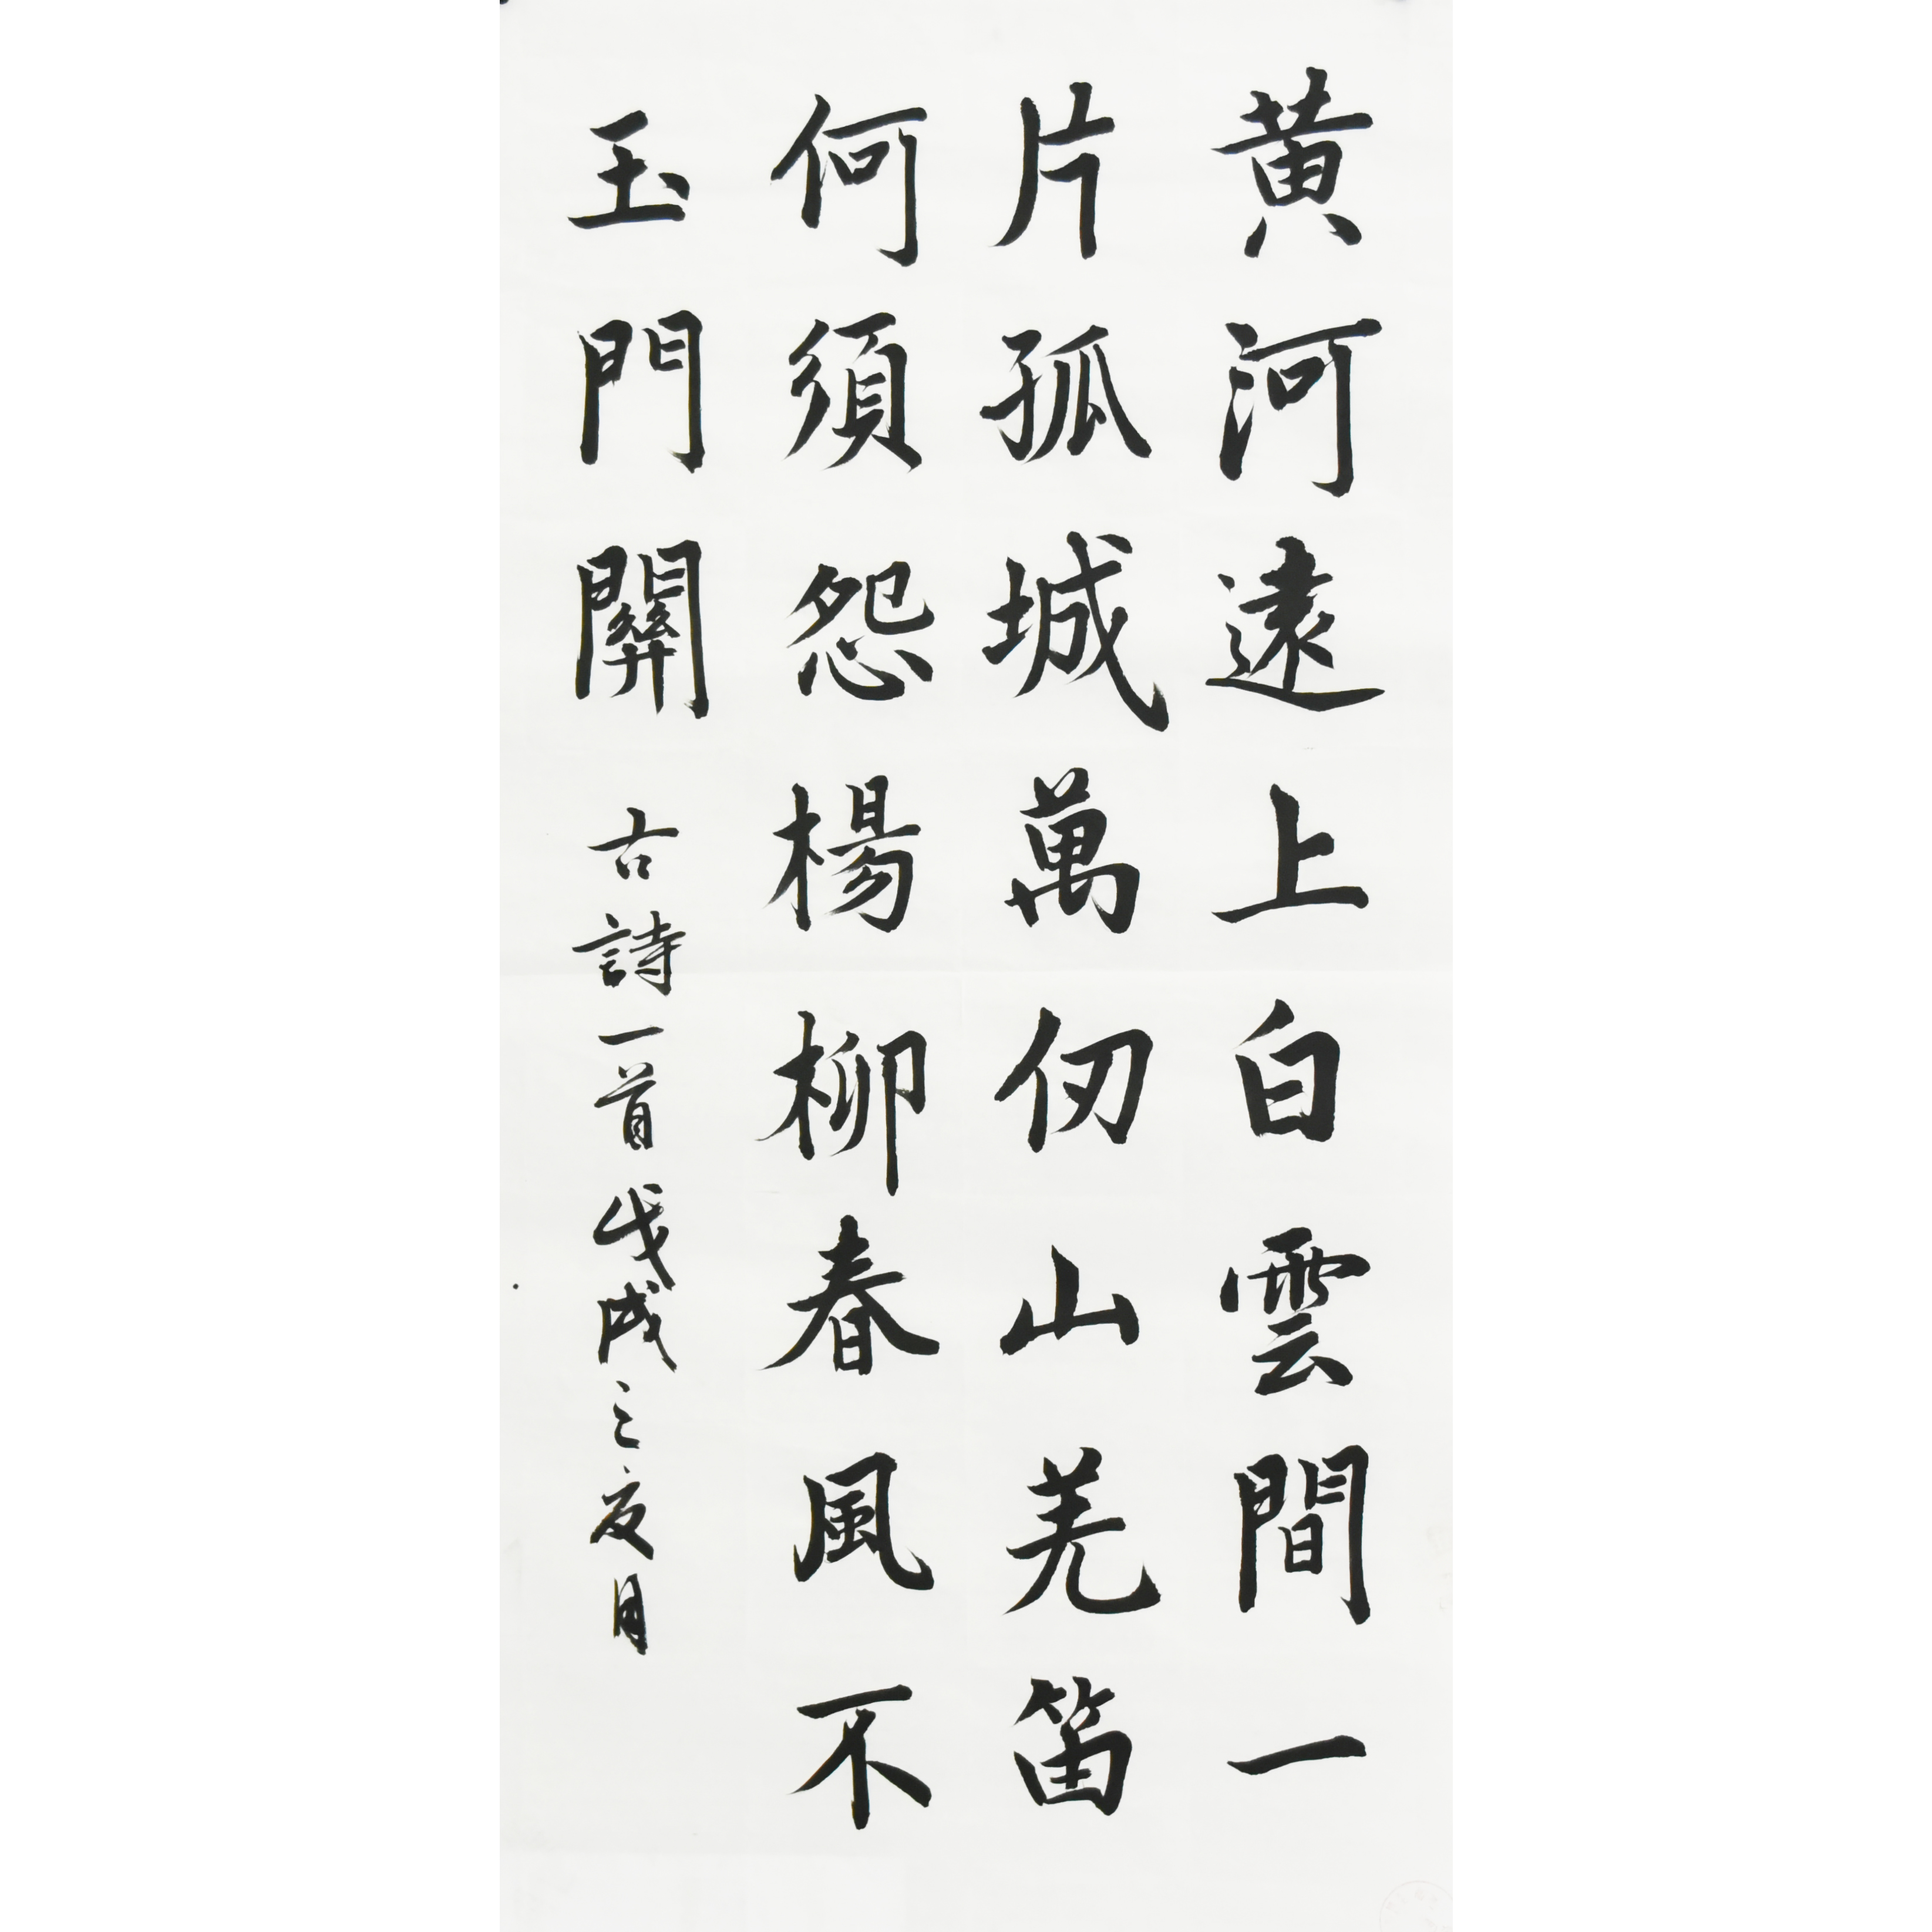 黄河遠上白雲間一
片孤城萬仞山羌笛
何須怨楊柳春風不
玉門關 古詩一首 戊戌之夏月